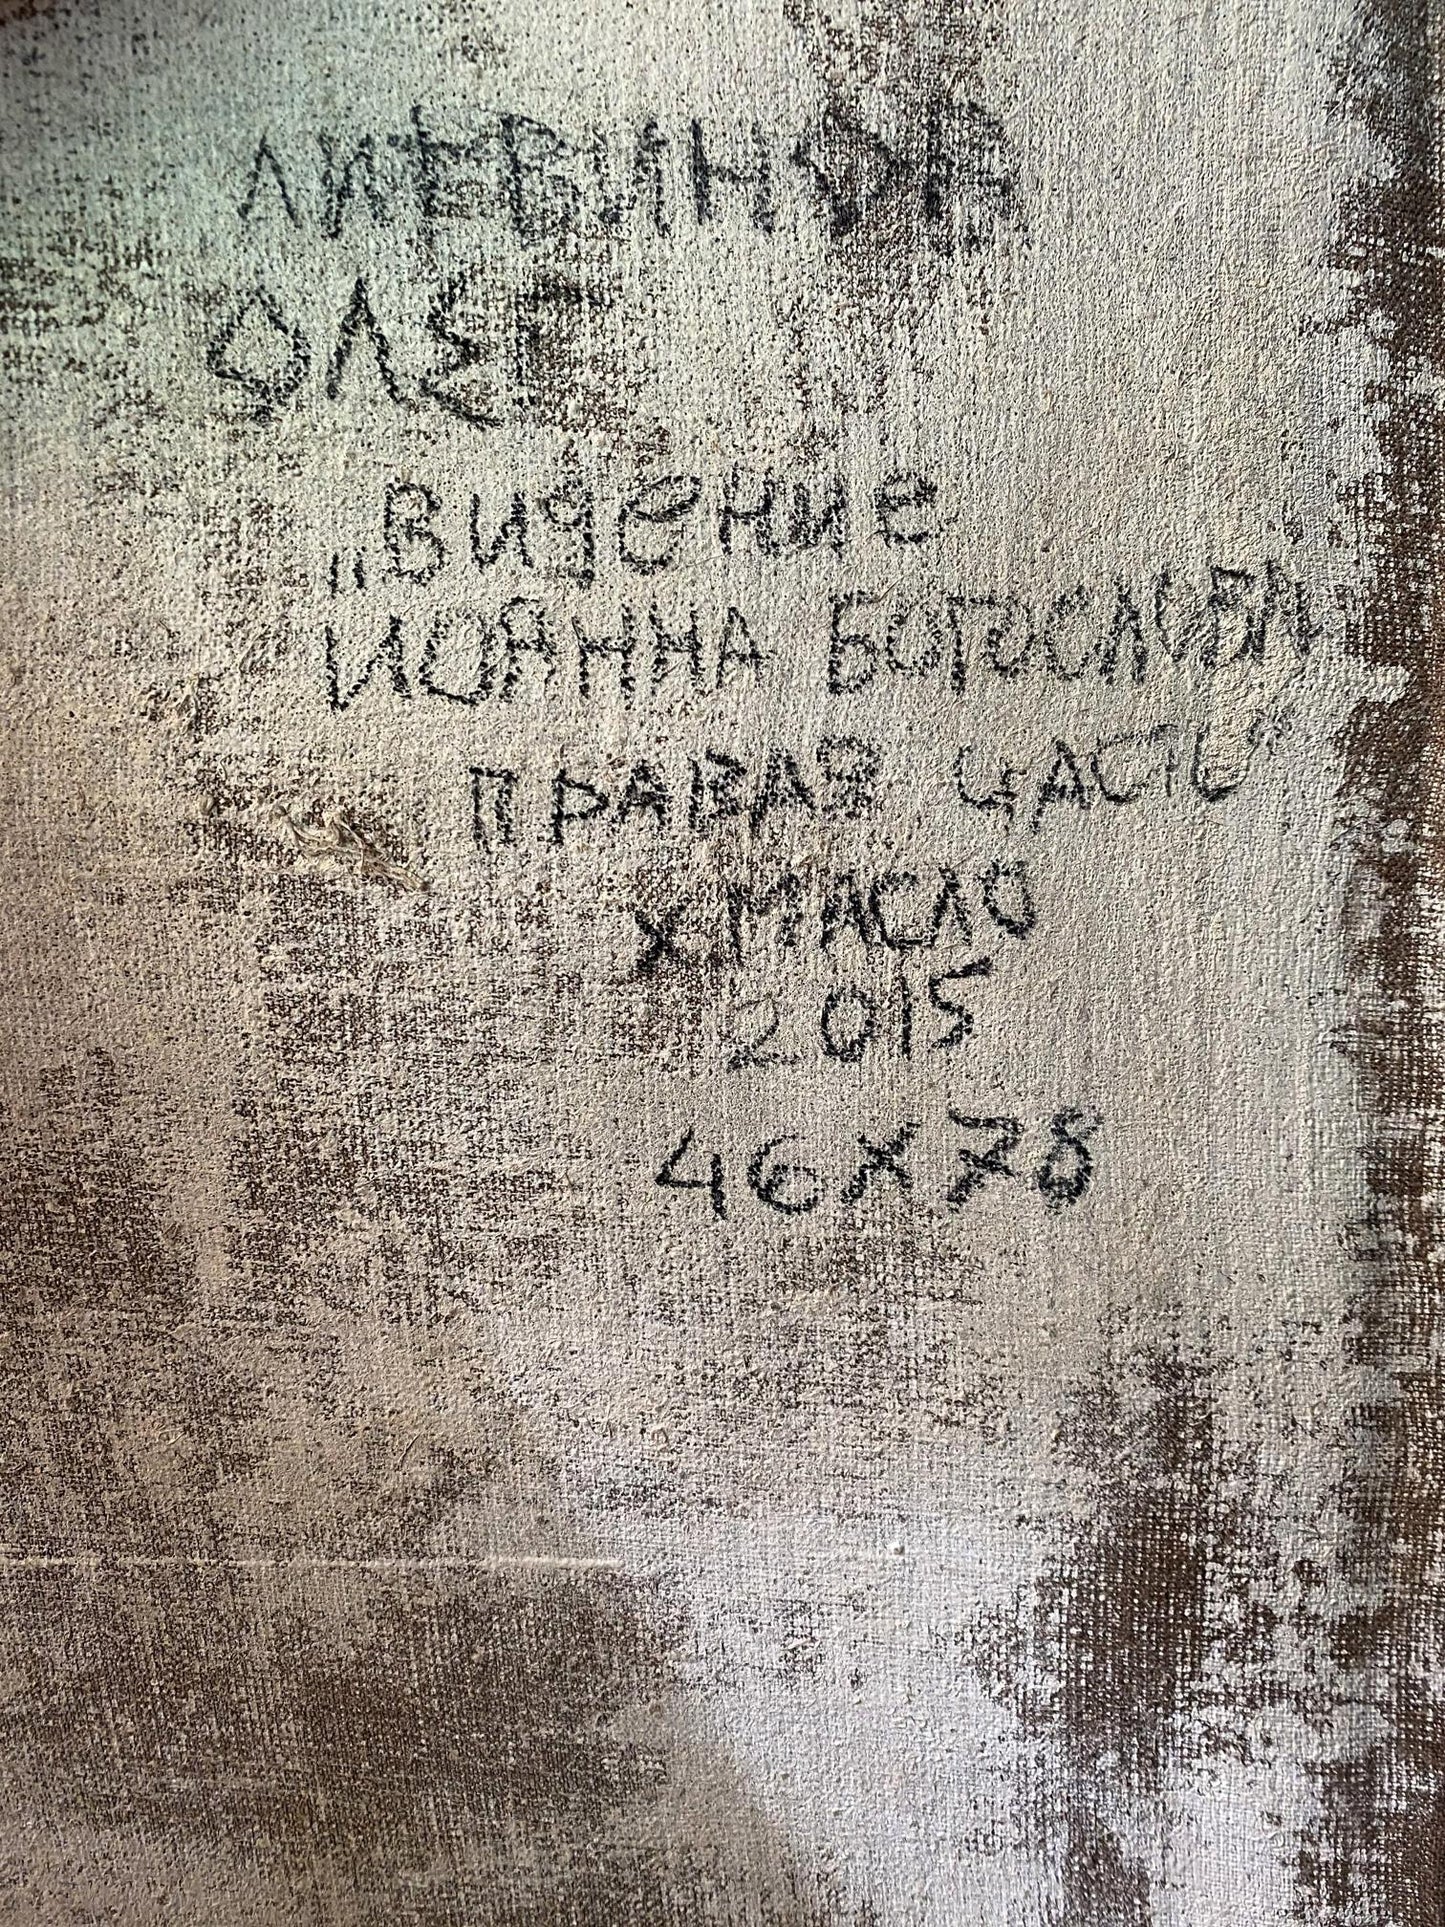 ЛИТВИНОВ
ОЛЕГ
„Видение
ИОАННА БОГОСЛОВА
ПРАВАЯ ЧАСТЬ“
Х МАСЛО
2015
46Х78